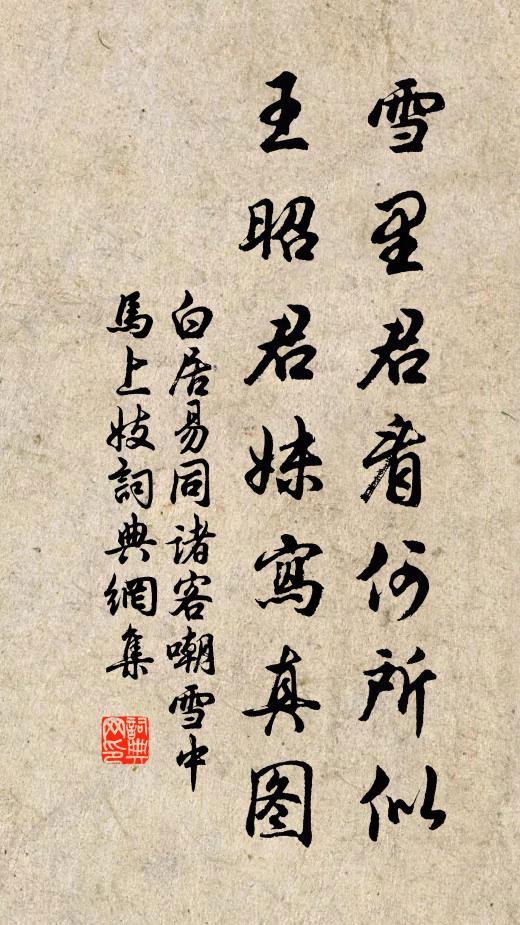 雪里君看何所似
王昭君妹寫真图
白居易同諸客嘲雪中
馬上妓詞典網集
詞典网印